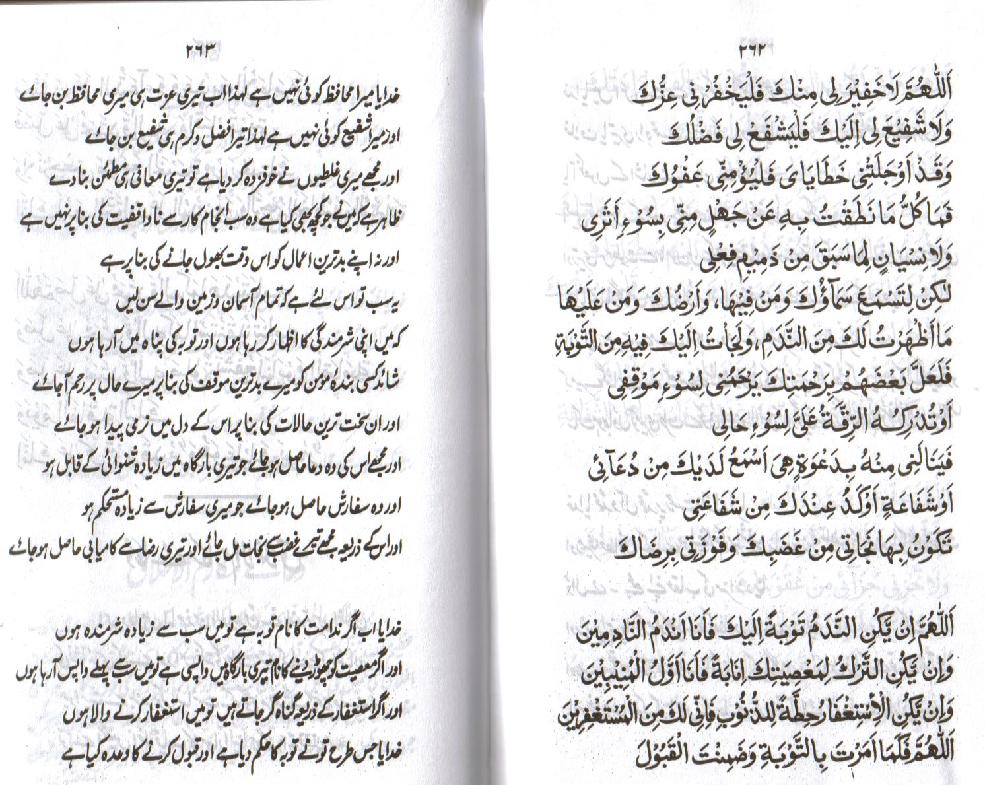 ٢٦٢
اَللّٰهُمَّ لَا خَفِيْرَ لِى مِنْكَ فَلْيَخْفُرْنِى عِزُّكَ
وَلَا شَفِيْعَ لِى اِلَيْكَ فَلْيَشْفَعْ لِى فَضْلُكَ
وَقَدْ اَوْجَلَتْنِى خَطَايَاىَ فَلْيُؤْمِنِّى عَفْوُكَ
فَمَا كُلُّ مَا نَطَقْتُ بِهٖ عَنْ جَهْلٍ مِنِّى بِسُوْءِ اَثَرِى
وَلَا نِسْيَانٍ لِمَا سَبَقَ مِنْ ذَمِيْمِ فِعْلِى
لٰكِنْ لِتَسْمَعَ سَمَآؤُكَ وَمَنْ فِيْهَا، وَاَرْضُكَ وَمَنْ عَلَيْهَا
مَا اَظْهَرْتُ لَكَ مِنَ النَّدَمِ، وَلَجَاْتُ اِلَيْكَ فِيْهِ مِنَ التَّوْبَةِ
فَلَعَلَّ بَعْضَهُمْ بِرَحْمَتِكَ يَرْحَمُنِى لِسُوْءِ مَوْقِفِى
اَوْ تُدْرِكُهُ الرِّقَّةُ عَلَىَّ لِسُوْءِ حَالِى
فَيَنَالَنِى مِنْهُ بِدَعْوَةٍ هِىَ اَسْمَعُ لَدَيْكَ مِنْ دُعَآئِى
اَوْ شَفَاعَةٍ اَوْكَدُ عِنْدَكَ مِنْ شَفَاعَتِى
تَكُوْنُ بِهَا نَجَاتِى مِنْ غَضَبِكَ وَفَوْزَتِى بِرِضَاكَ
اَللّٰهُمَّ اِنْ يَّكُنِ النَّدَمُ تَوْبَةً اِلَيْكَ فَاَنَا اَنْدَمُ النَّادِمِيْنَ
وَاِنْ يَّكُنِ التَّرْكُ لِمَعْصِيَتِكَ اِنَابَةً فَاَنَا اَوَّلُ الْمُنِيْبِيْنَ
وَاِنْ يَّكُنِ الْاِسْتِغْفَارُ حِطَّةً لِلذُّنُوْبِ فَاِنِّى لَكَ مِنَ الْمُسْتَغْفِرِيْنَ
اَللّٰهُمَّ فَكَمَا اَمَرْتَ بِالتَّوْبَةِ وَضَمِنْتَ الْقَبُوْلَ
٢٦٣
خدایا میرا محافظ کوئی نہیں ہے لہٰذا اب تیری عزت ہی میری محافظ بن جائے
اور میرا شفیع کوئی نہیں ہے لہٰذا تیرا فضل و کرم ہی شفیع بن جائے
اور مجھے میری غلطیوں نے خوفزدہ کر دیا ہے تو تیری معافی ہی مطمئن بنا دے
ظاہر ہے کہ میں نے جو کچھ بھی کہا ہے وہ سب انجام کار سے ناواقفیت کی بنا پر نہیں ہے
اور نہ اپنے بدترین اعمال کو اس وقت بھول جانے کی بنا پر ہے
یہ سب تو اس لئے ہے کہ تمام آسمان و زمین والے سن لیں
کہ میں اپنی شرمندگی کا اظہار کر رہا ہوں اور توبہ کی پناہ میں آ رہا ہوں
شائد کسی بندۂ مؤمن کو میرے بدترین موقف کی بنا پر میرے حال پر رحم آ جائے
اور ان سخت ترین حالات کی بنا پر اس کے دل میں نرمی پیدا ہو جائے
اور مجھے اس کی وہ دعا حاصل ہو جائے جو تیری بارگاہ میں زیادہ شنوائی کے قابل ہو
اور وہ سفارش حاصل ہو جائے جو میری سفارش سے زیادہ مستحکم ہو
اور اس کے ذریعہ مجھے تیرے غضب سے نجات مل جائے اور تیری رضا سے کامیابی حاصل ہو جائے
خدایا اب اگر ندامت کا نام توبہ ہے تو میں سب سے زیادہ شرمندہ ہوں
اور اگر معصیت کو چھوڑ دینے کا نام تیری بارگاہ میں واپسی ہے تو میں سب سے پہلے واپس آ رہا ہوں
اور اگر استغفار کے ذریعہ گناہ گر جاتے ہیں تو میں استغفار کرنے والا ہوں
خدایا جس طرح تو نے توبہ کا حکم دیا ہے اور قبول کرنے کا وعدہ کیا ہے